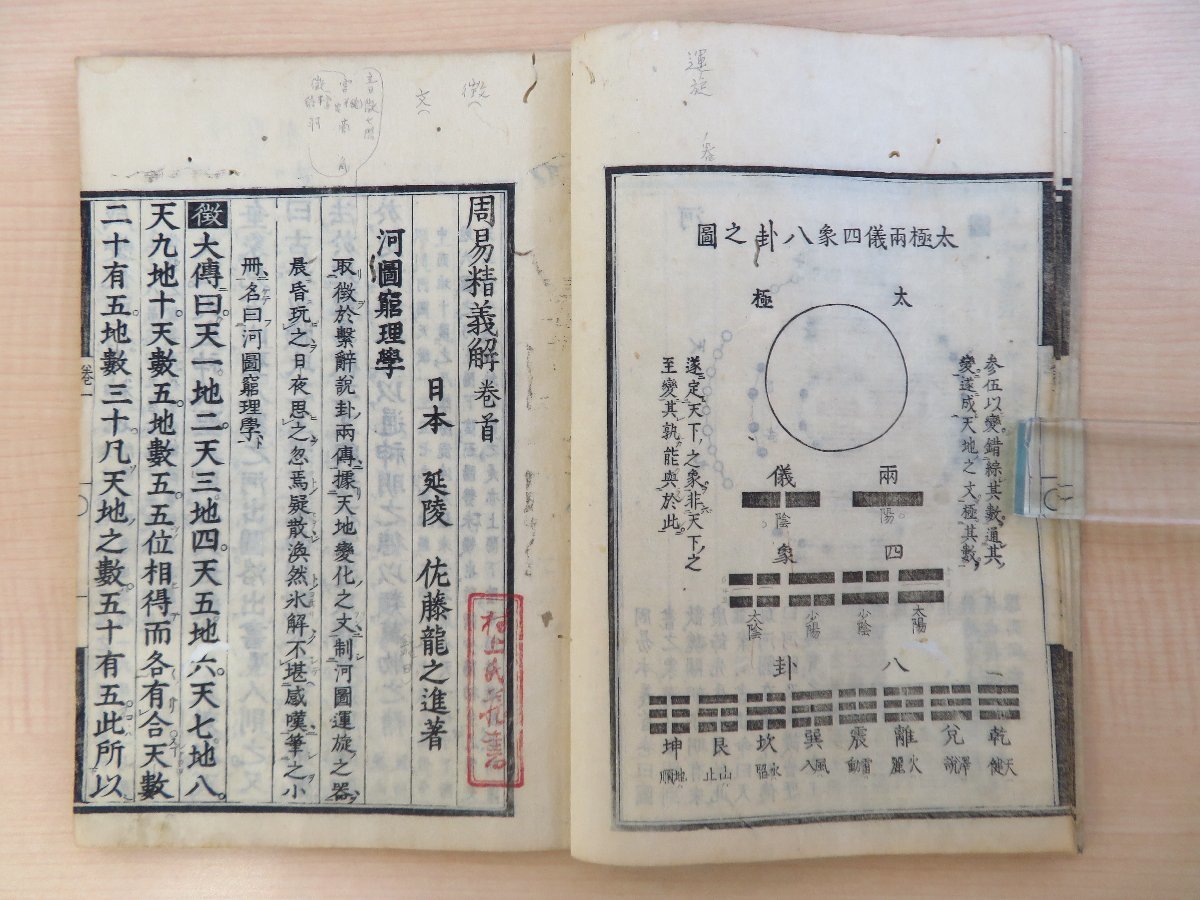 運旋
太極兩儀四象八卦之圖
太極
参伍以變錯綜其數通其
變遂成天地之文極其數
遂定天下之象非天下之
至變其孰能與於此
兩儀
陽 陰
四象
太陽 少陰 少陽 太陰
八卦
乾 兌 離 震 巽 坎 艮 坤
天 澤 火 雷 風 水 山 地
健 説 麗 動 入 陷 止 順
徵
文
周易精義解 卷首
日本 延陵 佐藤龍之進著
河圖窮理學
取徵於繫辭說卦兩傳據天地變化之文制河圖運旋之器
晨昏玩之日夜思之忽焉疑散渙然氷解不堪感嘆筆之小
冊名曰河圖窮理學
徵大傳曰天一地二天三地四天五地六天七地八
天九地十天數五地數五五位相得而各有合天數
二十有五地數三十凡天地之數五十有五此所以
卷一